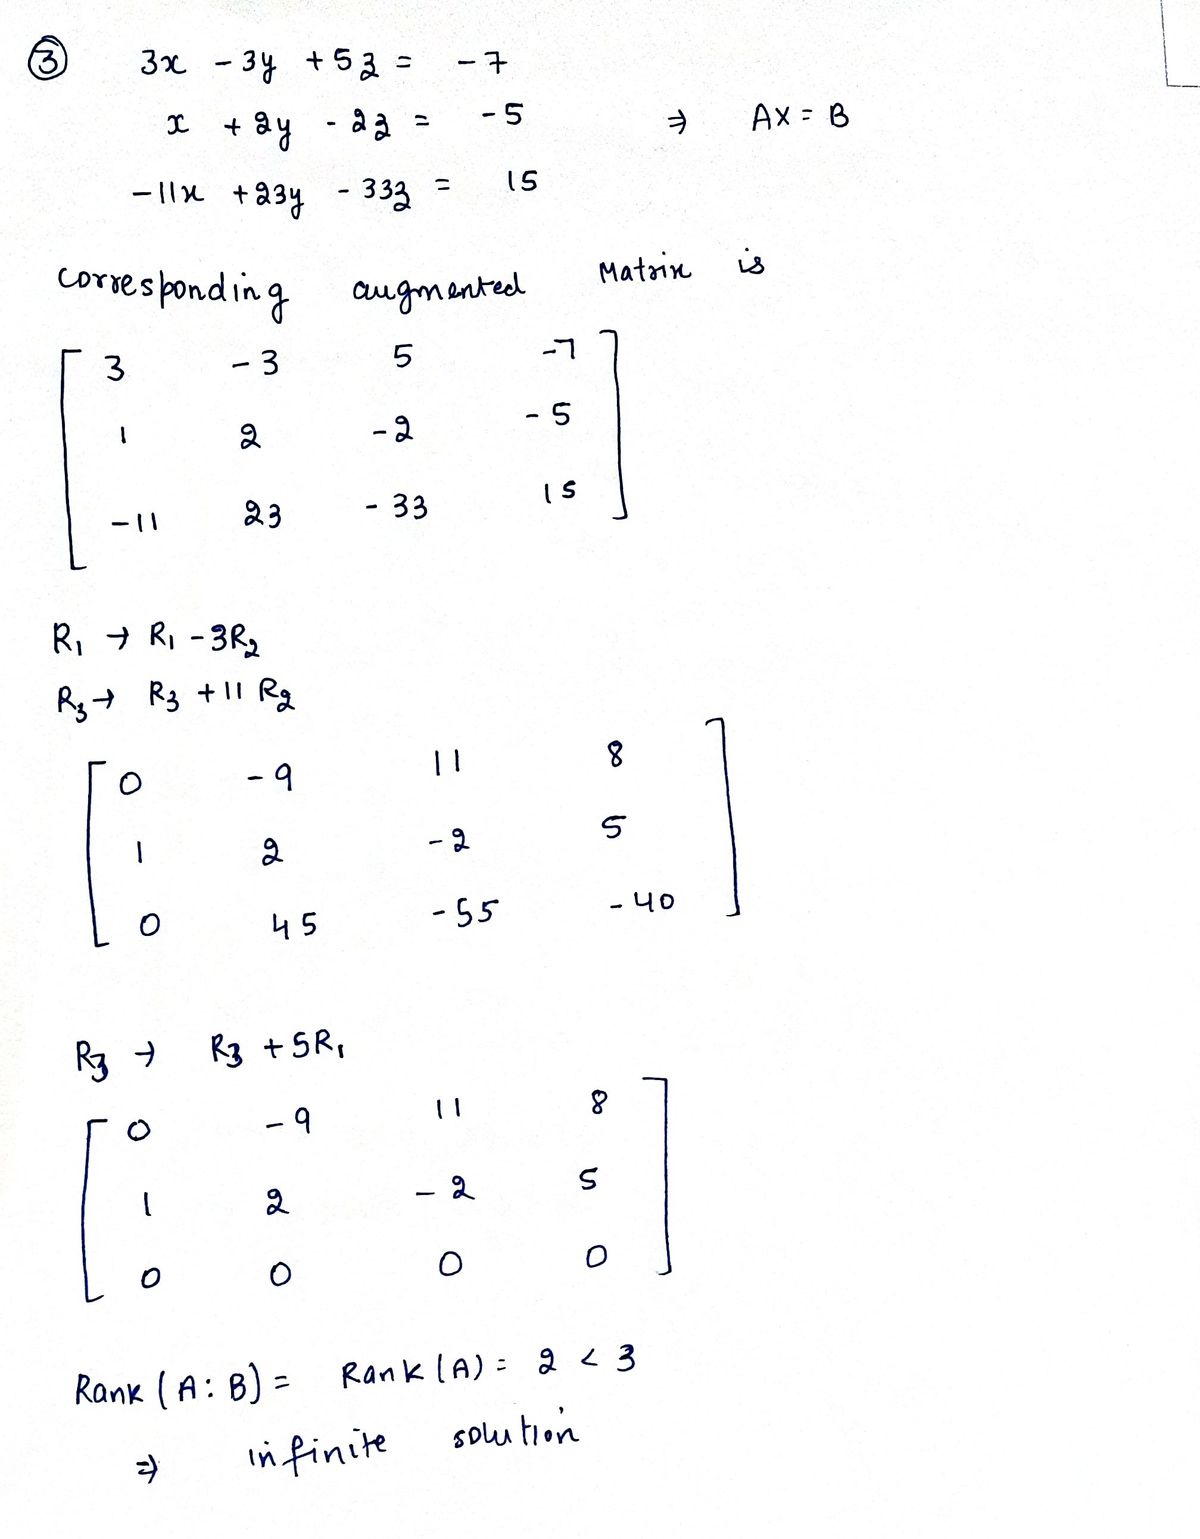 ③ 3x - 3y + 5z = -7
x + 2y - 2z = -5 ⇒ AX = B
-11x + 23y - 33z = 15
corresponding augmented Matrix is
3 -3 5 -7
1 2 -2 -5
-11 23 -33 15
R₁ → R₁ - 3R₂
R₃ → R₃ + 11 R₂
0 -9 11 8
1 2 -2 5
0 45 -55 -40
R₃ → R₃ + 5R₁
0 -9 11 8
1 2 -2 5
0 0 0 0
Rank (A : B) = Rank (A) = 2 < 3
⇒ infinite solution